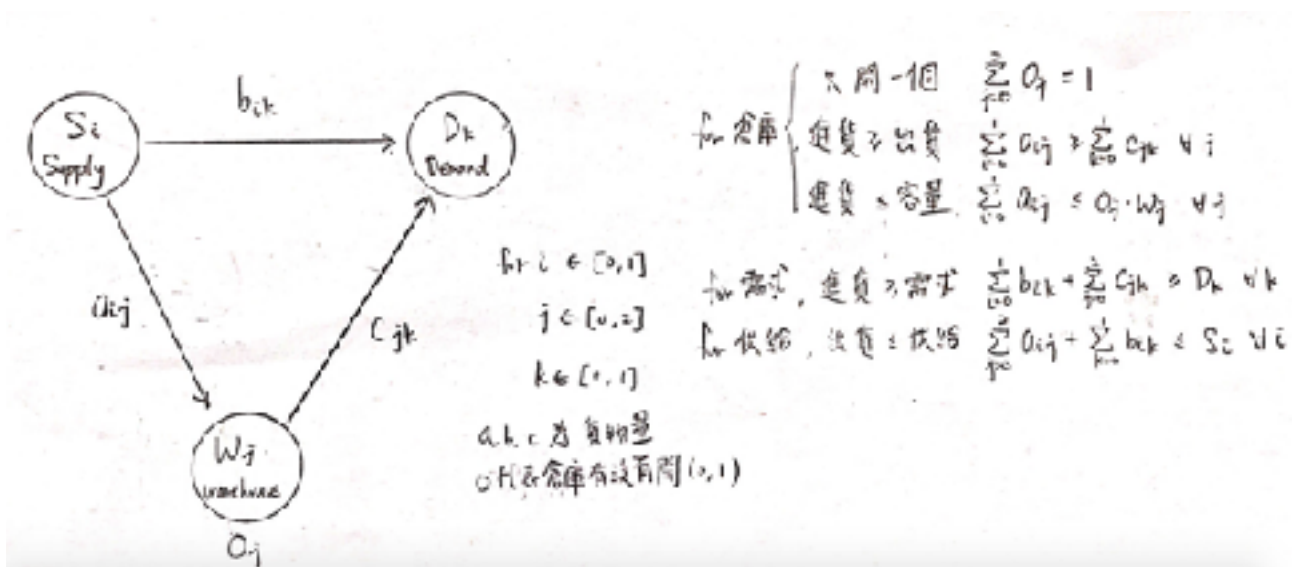 Si
Supply
bik
Dk
Demand
aij
Cjk
Wj
warehouse
Oj
for i ∈ [0,1]
j ∈ [0,2]
k ∈ [0,1]
a.b.c 為貨物量
O代表倉庫有沒有開(0,1)
for 倉庫
只開一個 ∑ Oj = 1
進貨 ≥ 出貨 ∑ aij ≥ ∑ Cjk ∀ j
進貨 ≤ 容量 ∑ aij ≤ Oj·Wj ∀ j
for 需求, 進貨 ≥ 需求 ∑ bik + ∑ Cjk ≥ Dk ∀ k
for 供給, 出貨 ≤ 供給 ∑ aij + ∑ bik ≤ Si ∀ i